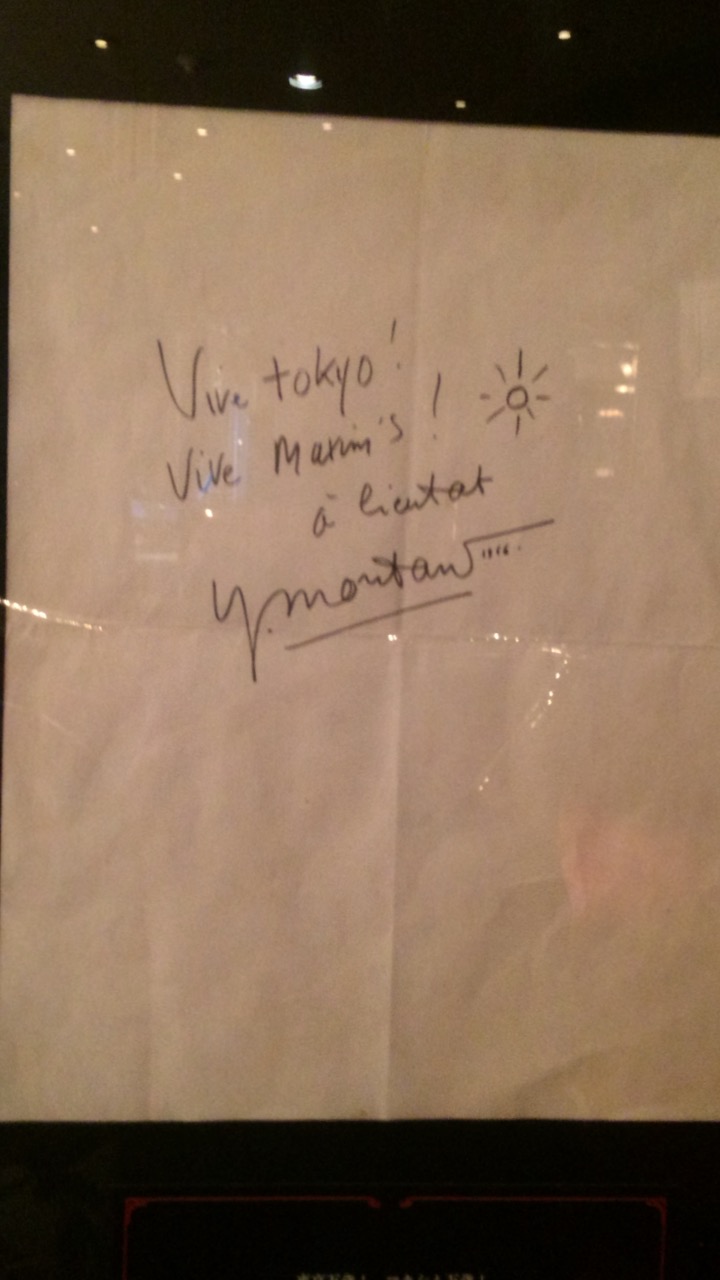 Vive tokyo!
Vive Maxim's!
à bientot
y. montand